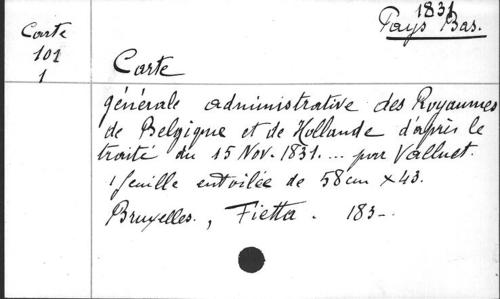 1831
Pays Bas.
Carte
101
1
Carte
générale administrative des Royaumes
de Belgique et de Hollande d'après le
traité du 15 Nov. 1831. ... par Valluet.
1 feuille entoilée de 58cm × 43.
Bruxelles., Fietta. 183-.